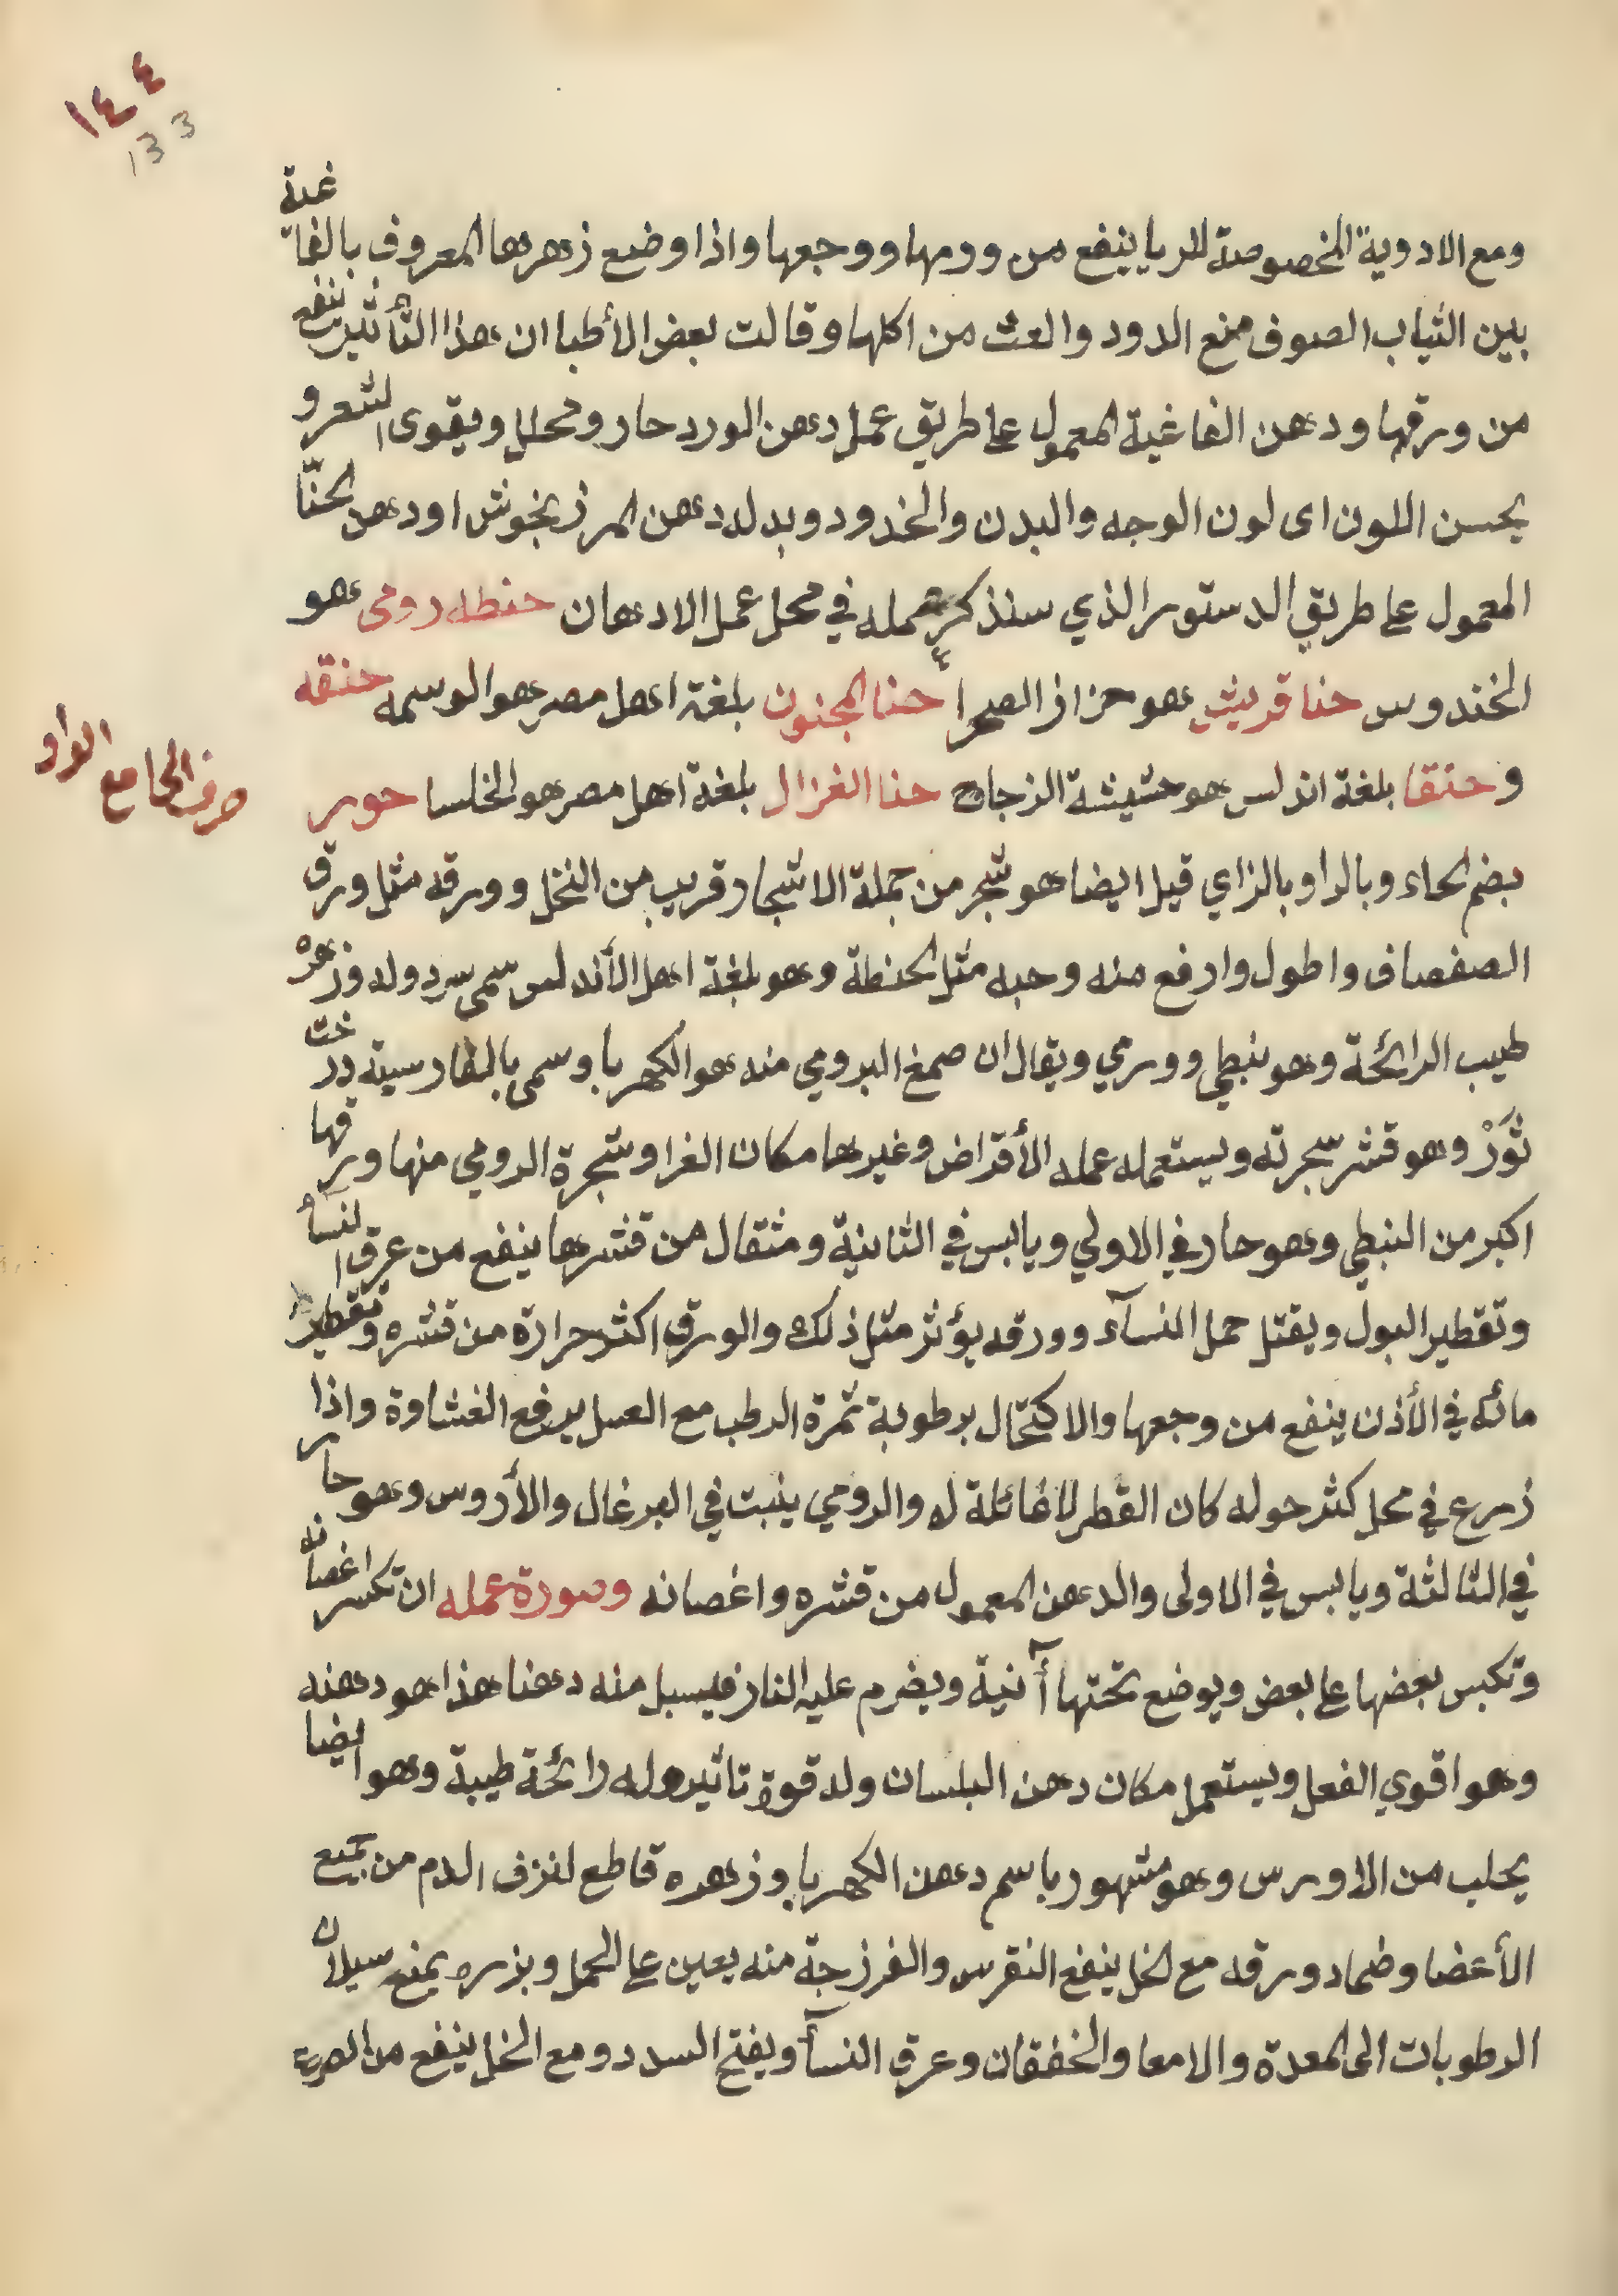 ١٤٤
133
ومع الادوية المخصوصة للريا ينفع من وومها ووجعها واذا وضع زهرها المعروف بالفاغية
بين الثياب الصوف منع الدود والعث من اكلها وقالت بعض الأطبا ان هذا التأثير ينفع
من ورقها ودهن الفاغية المعمول على طريق عمل دهن الورد حار ومحلل ويقوى الشعر و
يحسن اللون اى لون الوجه والبدن والخدود وبدله دهن المرزنجوش او دهن الحنّا
المعمول على طريق الدستور الذي سنذكر عمله في محل عمل الادهان حنطه رومى هو
الخندوس حنا قريش هو حزاز الصحرا حنا المجنون بلغة اهل مصر هو الوسمه حنقه
وحنقا بلغة اندلس هو حشيشة الزجاج حنا الغزال بلغة اهل مصر هو الخلسا حور
حرف الحا مع الواو
بضم الحاء وبالرا وبالزاي قيل ايضا هو شجر من جملة الاشجار قريب من النخل وورقه مثل ورق
الصفصاف واطول وارفع منه وحبه مثل الحنطة وهو بلغة اهل الأندلس سمى سردوله وزهره
طيب الرائحة وهو نبطي وورمي ويقال ان صمغ البرومي منه هو الكهربا وسمى بالفارسية درخت
ثَوَزْ وهو قشر سجرته ويستعمله عمله الأقراض وغيرها مكان الغرا وشجرة الرومي منها ورقها
اكبر من النبطي وهو حار في الاولي ويابس في الثانية ومثقال من قشرها ينفع من عرق النسأ
وتقطير البول ويقتل حمل النسآء وورقه يؤثر مثل ذلك والورق اكثر حرارة من قشره وتقطير
مائه في الأذن ينفع من وجعها والاكتحال برطوبة ثمرة الرطب مع العسل يرفع الغشاوة واذا
زرع في محل كثر حوله كان القطر لا غائلة له والرومي ينبت في البرغال والأروس وهو حار
في الثالثة ويابس في الاولى والدهن المعمول من قشره واغصانه وسورة عمله ان تكسر اغصانه
وتكبس بعضها على بعض ويوضع تحتها آنية ويضرم عليه النار فيسبل منه دهنا هذا هو دهنه
وهو اقوي الفعل ويستعمل مكان دهن البلسان وله قوة تاثير وله رائحة طيبة وهو ايضا
يجلب من الاورس وهو مشهور باسم دهن الكهربا وزهره قاطع لنزف الدم من جميع
الأعضا وضماد ورقه مع الخل ينفع النقرس والفرزجة منه يعين على الحمل وبزره يمنع سيلان
الرطوبات الى المعدة والامعا والخفقان وعرق النسأ ويفتح السدد ومع الخل ينفع من الصرع